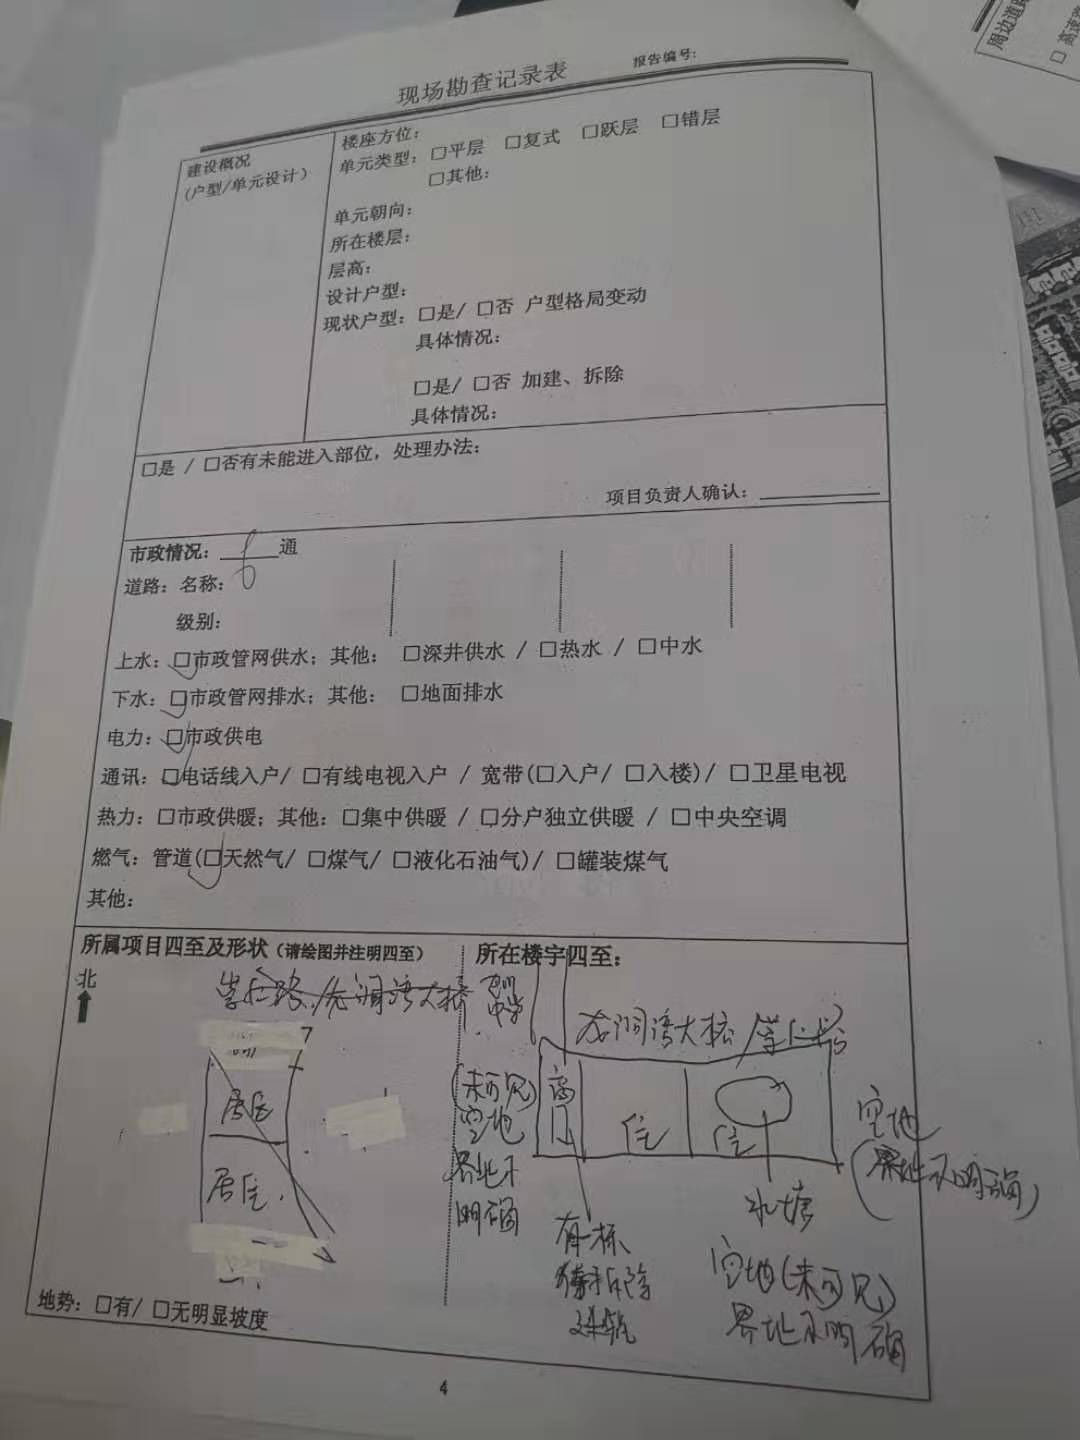 现场勘查记录表
报告编号:
周边道路
□ 高速
建设概况
(户型/单元设计)
楼座方位:
单元类型: □平层 □复式 □跃层 □错层
□其他:
单元朝向:
所在楼层:
层高:
设计户型:
现状户型: □是/ □否 户型格局变动
具体情况:
□是/ □否 加建、拆除
具体情况:
□是 / □否有未能进入部位, 处理办法:
项目负责人确认:
市政情况: 通
道路: 名称:
级别:
上水: □市政管网供水; 其他: □深井供水 / □热水 / □中水
下水: □市政管网排水; 其他: □地面排水
电力: □市政供电
通讯: □电话线入户/ □有线电视入户 / 宽带(□入户/ □入楼)/ □卫星电视
热力: □市政供暖; 其他: □集中供暖 / □分户独立供暖 / □中央空调
燃气: 管道(□天然气/ □煤气/ □液化石油气)/ □罐装煤气
其他:
所属项目四至及形状 (请绘图并注明四至)
北
居住
居住
所在楼宇四至:
龙洞湾大桥
(未可见)
空地
界址不
明确
商
住
住
空地
(界址不明确)
水塘
有一栋
待拆除
建筑
空地(未可见)
界址不明确
地势: □有/ □无明显坡度
4